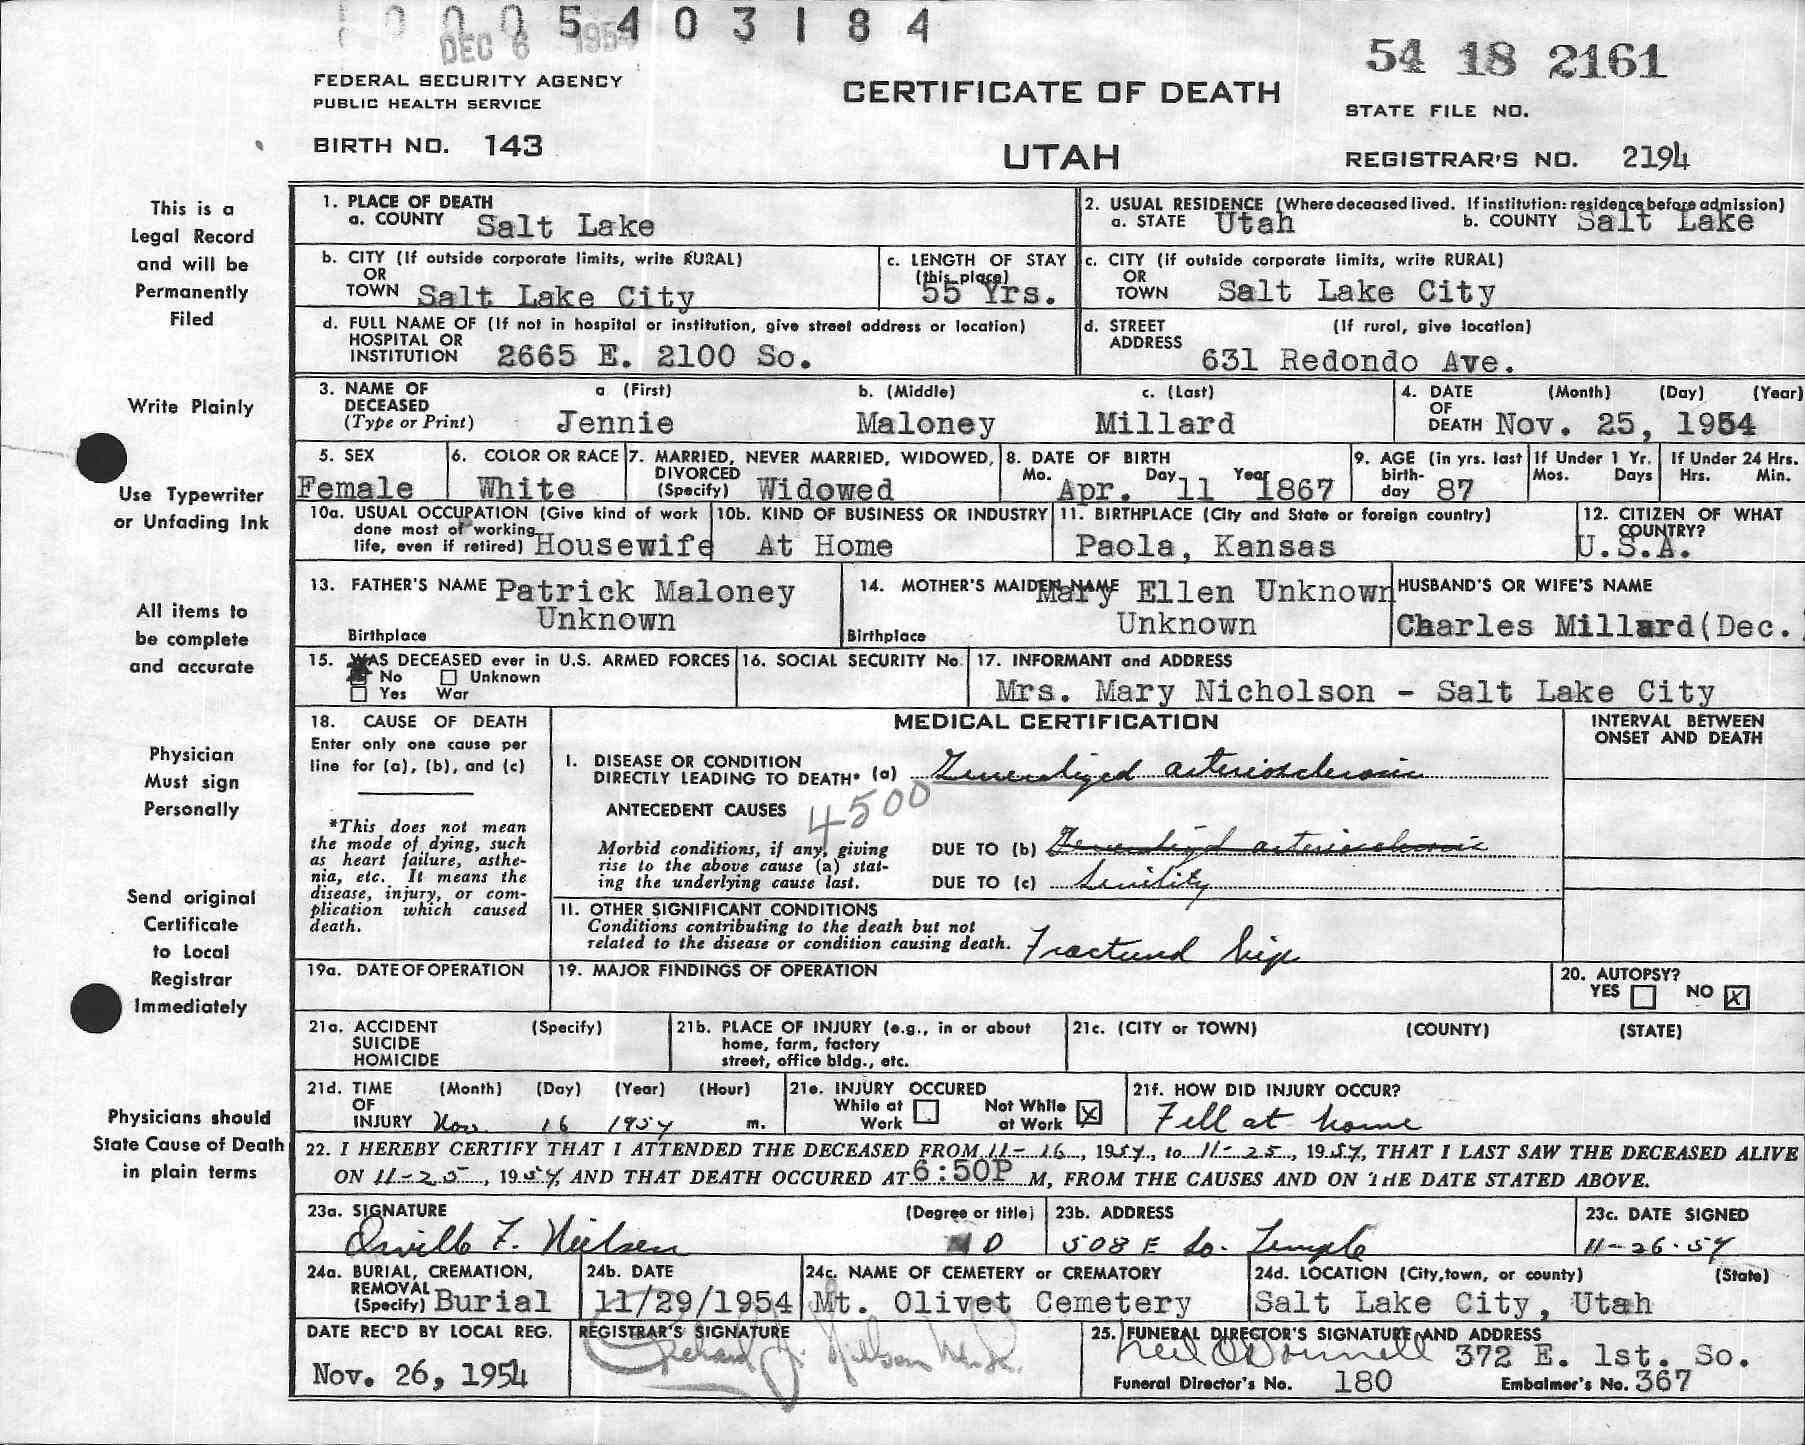 0005403184
DEC 6 1954
54 18 2161
FEDERAL SECURITY AGENCY
PUBLIC HEALTH SERVICE
CERTIFICATE OF DEATH
STATE FILE NO.
BIRTH NO. 143
UTAH
REGISTRAR'S NO. 2194
This is a
Legal Record
and will be
Permanently
Filed
Write Plainly
Use Typewriter
or Unfading Ink
All items to
be complete
and accurate
Physician
Must sign
Personally
Send original
Certificate
to Local
Registrar
Immediately
Physicians should
State Cause of Death
in plain terms
1. PLACE OF DEATH
a. COUNTY Salt Lake
2. USUAL RESIDENCE (Where deceased lived. If institution: residence before admission)
a. STATE Utah b. COUNTY Salt Lake
b. CITY (If outside corporate limits, write RURAL)
OR
TOWN Salt Lake City
c. LENGTH OF STAY
(this place)
55 Yrs.
c. CITY (If outside corporate limits, write RURAL)
OR
TOWN Salt Lake City
d. FULL NAME OF (If not in hospital or institution, give street address or location)
HOSPITAL OR
INSTITUTION 2665 E. 2100 So.
d. STREET (If rural, give location)
ADDRESS
631 Redondo Ave.
3. NAME OF a (First) b. (Middle) c. (Last)
DECEASED
(Type or Print) Jennie Maloney Millard
4. DATE (Month) (Day) (Year)
OF
DEATH Nov. 25, 1954
5. SEX
Female
6. COLOR OR RACE
White
7. MARRIED, NEVER MARRIED, WIDOWED,
DIVORCED
(Specify) Widowed
8. DATE OF BIRTH
Mo. Day Year
Apr. 11 1867
9. AGE (in yrs. last
birth-
day 87
If Under 1 Yr.
Mos. Days
If Under 24 Hrs.
Hrs. Min.
10a. USUAL OCCUPATION (Give kind of work
done most of working
life, even if retired) Housewife
10b. KIND OF BUSINESS OR INDUSTRY
At Home
11. BIRTHPLACE (City and State or foreign country)
Paola, Kansas
12. CITIZEN OF WHAT
COUNTRY?
U.S.A.
13. FATHER'S NAME Patrick Maloney
Unknown
Birthplace
14. MOTHER'S MAIDEN NAME Mary Ellen Unknown
Unknown
Birthplace
HUSBAND'S OR WIFE'S NAME
Charles Millard(Dec.
15. WAS DECEASED ever in U.S. ARMED FORCES
No Unknown
Yes War
16. SOCIAL SECURITY No.
17. INFORMANT and ADDRESS
Mrs. Mary Nicholson - Salt Lake City
18. CAUSE OF DEATH
Enter only one cause per
line for (a), (b), and (c)
*This does not mean
the mode of dying, such
as heart failure, asthe-
nia, etc. It means the
disease, injury, or com-
plication which caused
death.
MEDICAL CERTIFICATION
INTERVAL BETWEEN
ONSET AND DEATH
I. DISEASE OR CONDITION
DIRECTLY LEADING TO DEATH* (a) Generalized arteriosclerosis
ANTECEDENT CAUSES 4500
Morbid conditions, if any, giving
rise to the above cause (a) stat-
ing the underlying cause last.
DUE TO (b) Generalized arteriosclerosis
DUE TO (c) Senility
II. OTHER SIGNIFICANT CONDITIONS
Conditions contributing to the death but not
related to the disease or condition causing death. Fractured hip
19a. DATE OF OPERATION
19. MAJOR FINDINGS OF OPERATION
20. AUTOPSY?
YES NO X
21a. ACCIDENT (Specify)
SUICIDE
HOMICIDE
21b. PLACE OF INJURY (e.g., in or about
home, farm, factory
street, office bldg., etc.
21c. (CITY or TOWN) (COUNTY) (STATE)
21d. TIME (Month) (Day) (Year) (Hour)
OF
INJURY Nov 16 1954 m.
21e. INJURY OCCURED
While at Not While X
Work at Work
21f. HOW DID INJURY OCCUR?
Fell at home
22. I HEREBY CERTIFY THAT I ATTENDED THE DECEASED FROM 11-16, 1954, to 11-25, 1954, THAT I LAST SAW THE DECEASED ALIVE
ON 11-25, 1954, AND THAT DEATH OCCURED AT 6:50P M, FROM THE CAUSES AND ON THE DATE STATED ABOVE.
23a. SIGNATURE (Degree or title)
Orville F. Nielsen MD
23b. ADDRESS
508 E So. Temple
23c. DATE SIGNED
11-26-54
24a. BURIAL, CREMATION,
REMOVAL
(Specify) Burial
24b. DATE
11/29/1954
24c. NAME OF CEMETERY or CREMATORY
Mt. Olivet Cemetery
24d. LOCATION (City, town, or county) (State)
Salt Lake City, Utah
DATE REC'D BY LOCAL REG.
Nov. 26, 1954
REGISTRAR'S SIGNATURE
Richard J. Nelson
25. FUNERAL DIRECTOR'S SIGNATURE AND ADDRESS
Neil O'Donnell 372 E. 1st. So.
Funeral Director's No. 180 Embalmer's No. 367